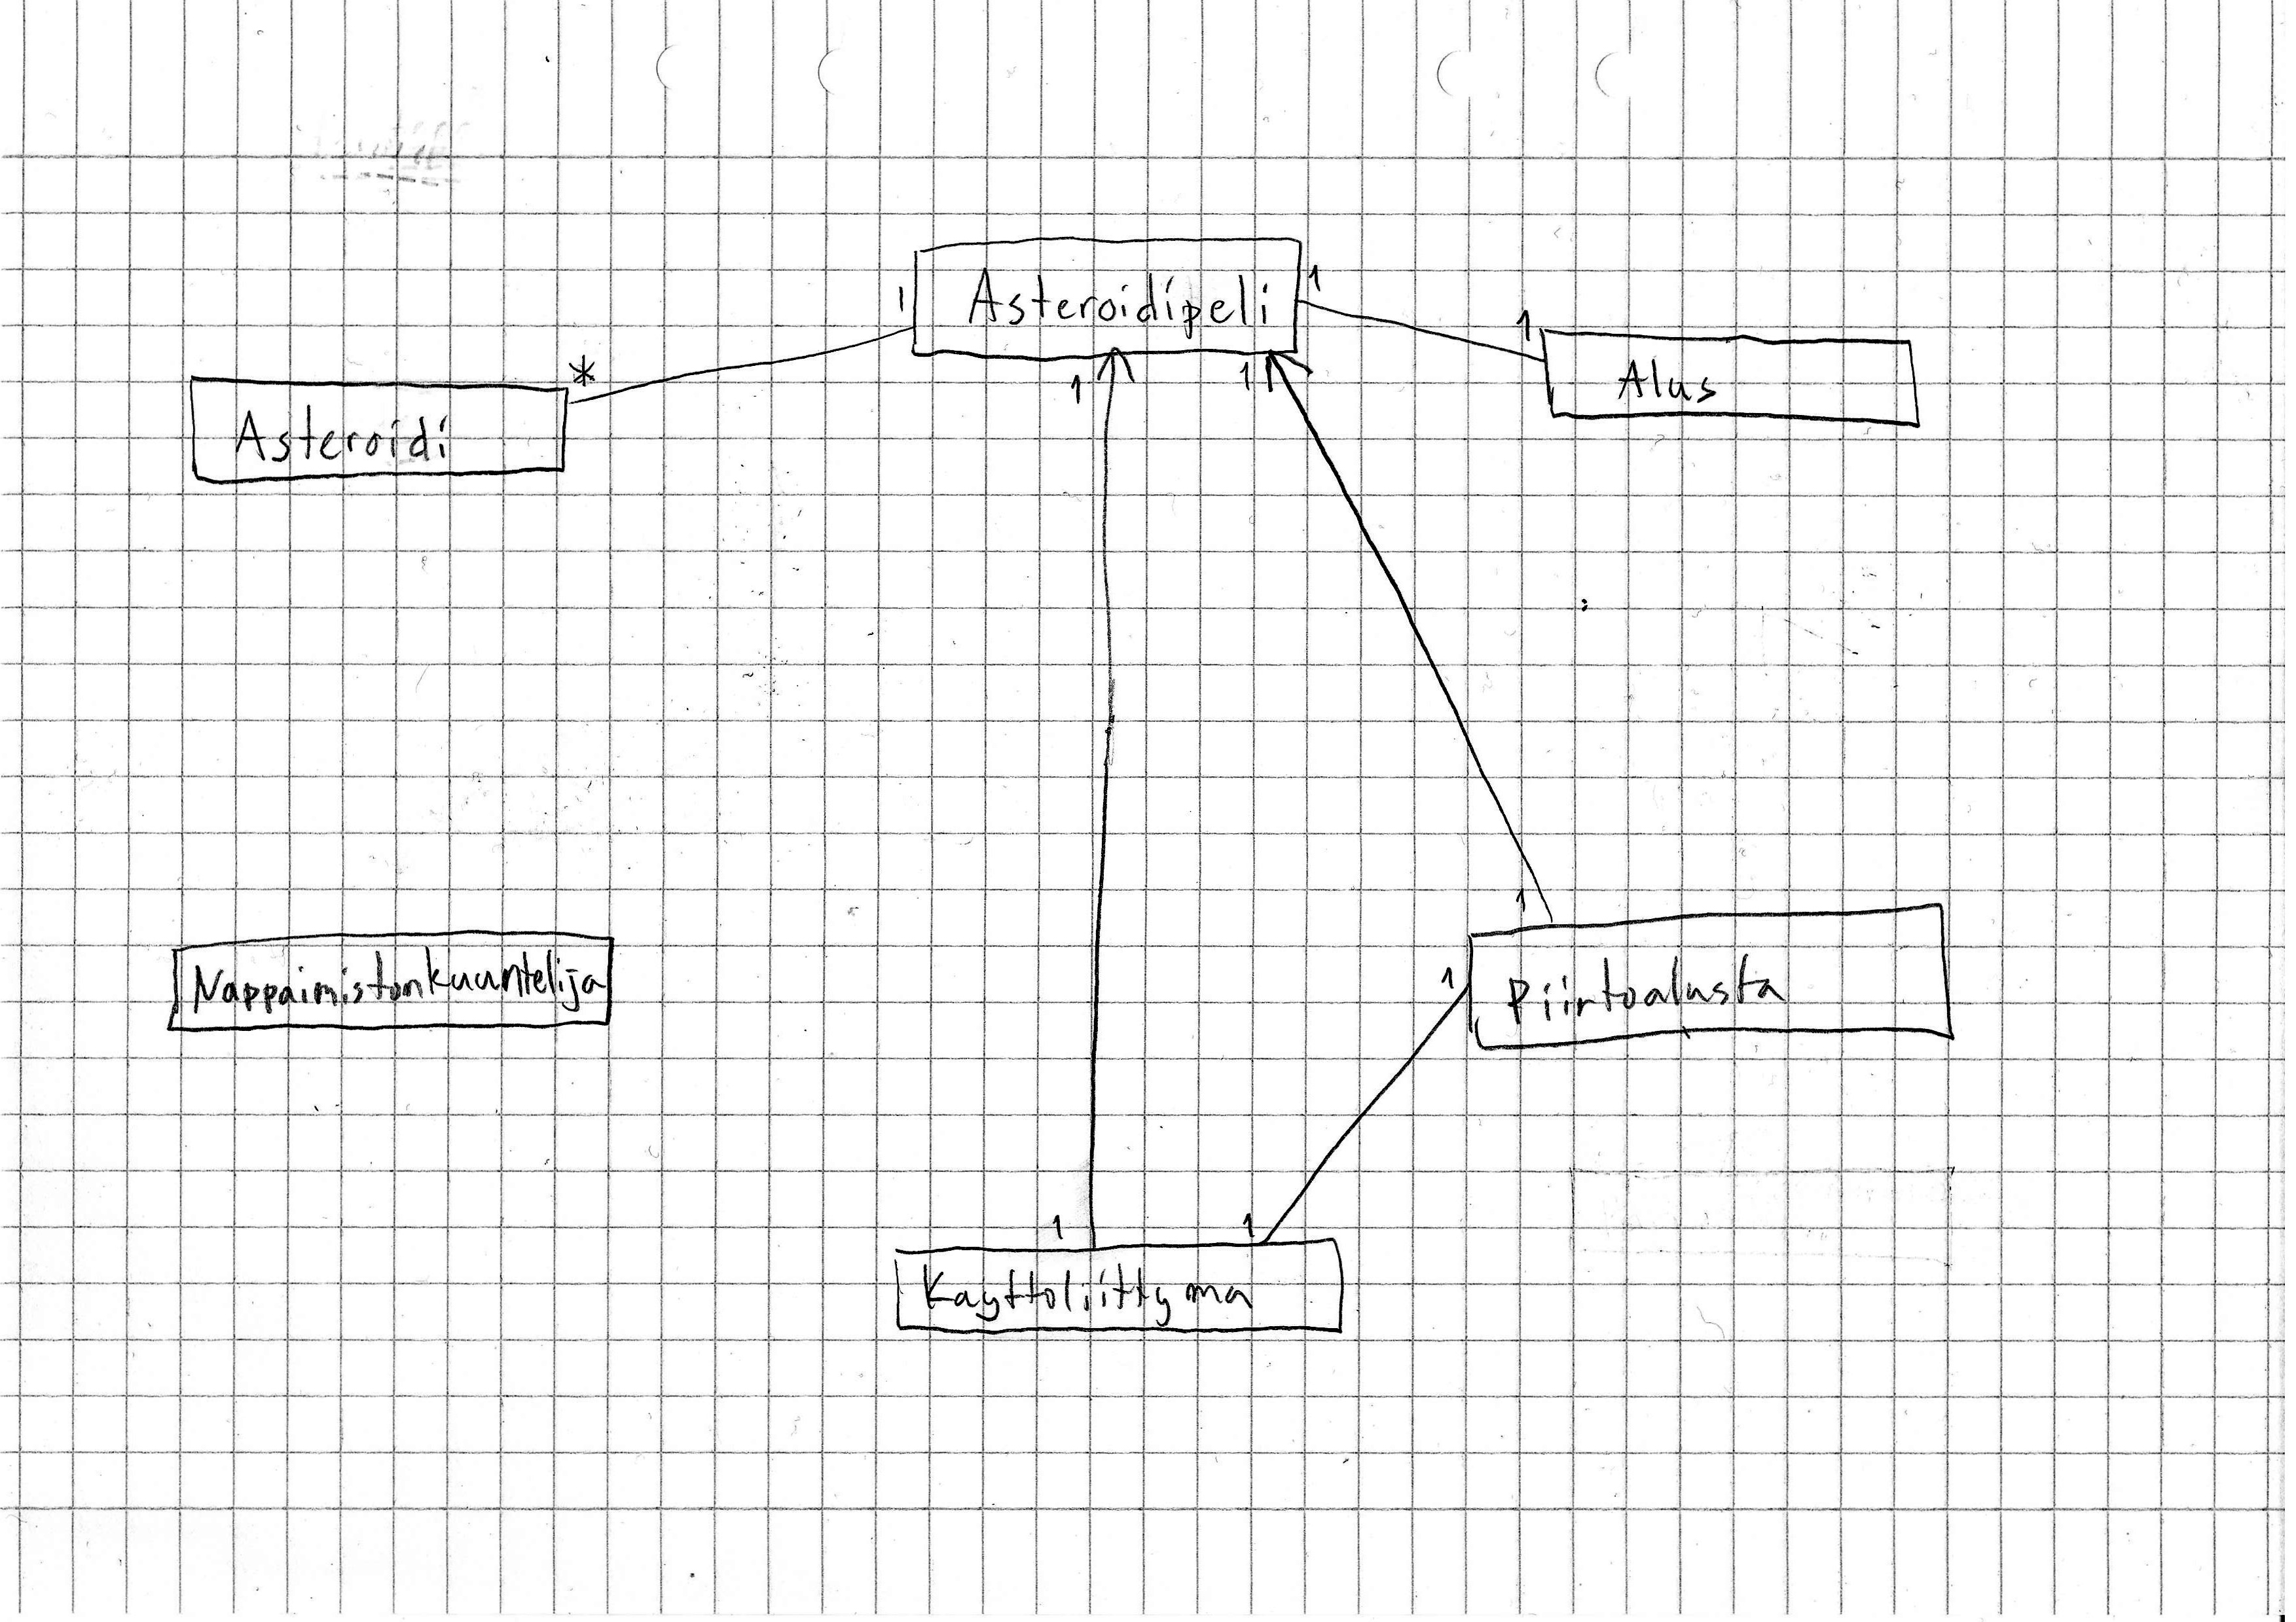 Asteroidipeli
1
1
1
Alus
*
Asteroidi
1
1
1
Nappaimistonkuuntelija
1
Piirtoalusta
1
1
Kayttoliittyma